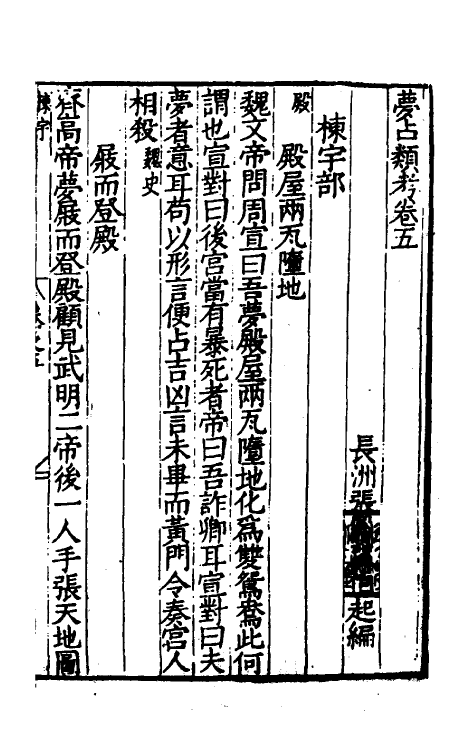 夢占類考卷五
長洲張 起編
棟宇部
殿
殿屋兩瓦墮地
魏文帝問周宣曰吾夢殿屋兩瓦墮地化爲雙鴛鴦此何
謂也宣對曰後宮當有暴死者帝曰吾詐卿耳宣對曰夫
夢者意耳苟以形言便占吉凶言未畢而黃門令奏宮人
相殺魏史
屐而登殿
齊高帝夢屐而登殿顧見武明二帝後一人手張天地圖
棟宇